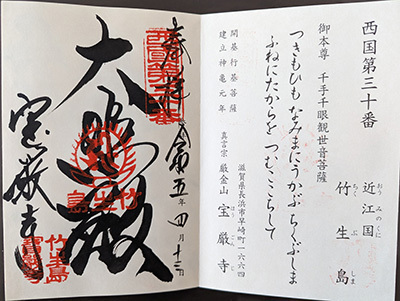 西国第三十番
近江国 竹生島
おうみのくに ちくぶしま
御本尊 千手千眼観世音菩薩
つきもひも なみまにうかぶ ちくぶしま
ふねにたからを つむここちして
開基 行基菩薩
建立 神亀元年
滋賀県長浜市早崎町一六六四
真言宗 厳金山 宝厳寺
ほうごんじ
奉拝
令和五年四月十三日
大悲殿
宝厳寺
西國第三十番
竹生島
竹生島
寶嚴寺